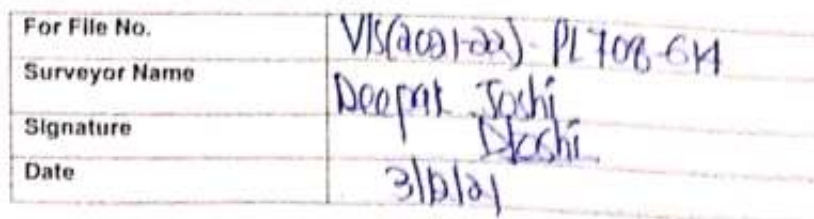 For File No. VIS(2021-22)-PL708-614
Surveyor Name Deepak Joshi
Signature DJoshi
Date 3/12/21